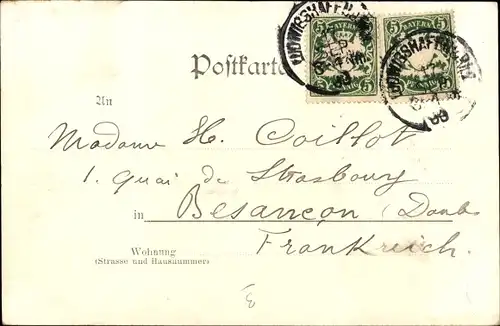 BAYERN BAYERN
5 5 5 5
PFENNIG PFENNIG
LUDWIGSHAFEN
Postkarte
An
Madame H. Coillot
1. Quai de Strasbourg
in Besançon (Doubs
Frankreich.
Wohnung
(Strasse und Hausnummer)